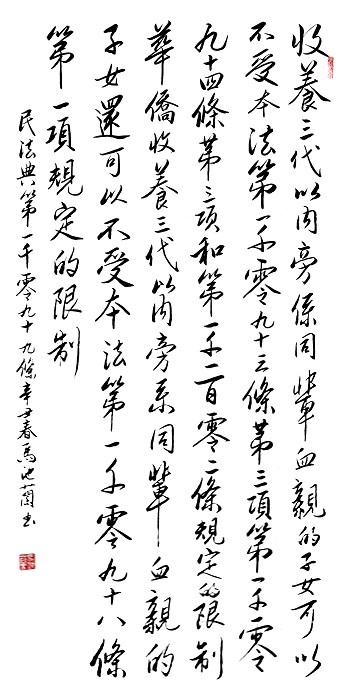 收養三代以内旁係同輩血親的子女可以
不受本法第一千零九十三條第三項第一千零
九十四條第三項和第一千一百零二條規定的限制
華僑收養三代以内旁系同輩血親的
子女還可以不受本法第一千零九十八條
第一項規定的限制
民法典第一千零九十九條辛丑春馬書